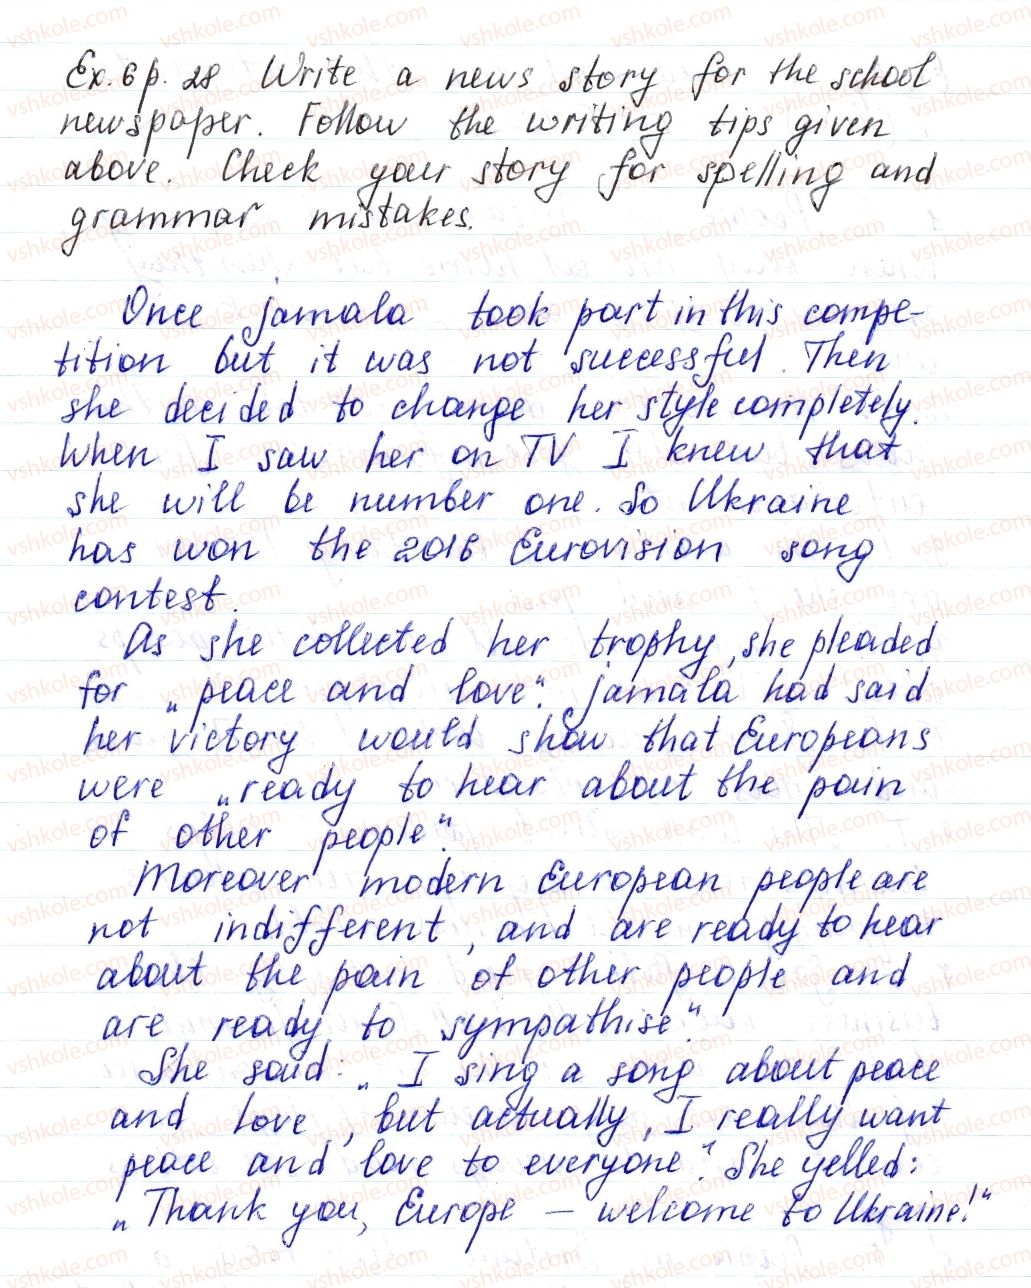 Ex. 6 p. 28 Write a news story for the school
newspaper. Follow the writing tips given
above. Check your story for spelling and
grammar mistakes.
Once jamala took part in this compe-
tition but it was not successful. Then
she decided to change her style completely.
When I saw her on TV I knew that
she will be number one. So Ukraine
has won the 2016 Eurovision song
contest.
As she collected her trophy, she pleaded
for „peace and love“. jamala had said
her victory would show that Europeans
were „ready to hear about the pain
of other people“.
Moreover modern European people are
not indifferent, and are ready to hear
about the pain of other people and
are ready to sympathise“.
She said: „I sing a song about peace
and love, but actually, I really want
peace and love to everyone“. She yelled:
„Thank you, Europe – welcome to Ukraine!“
vshkole.com